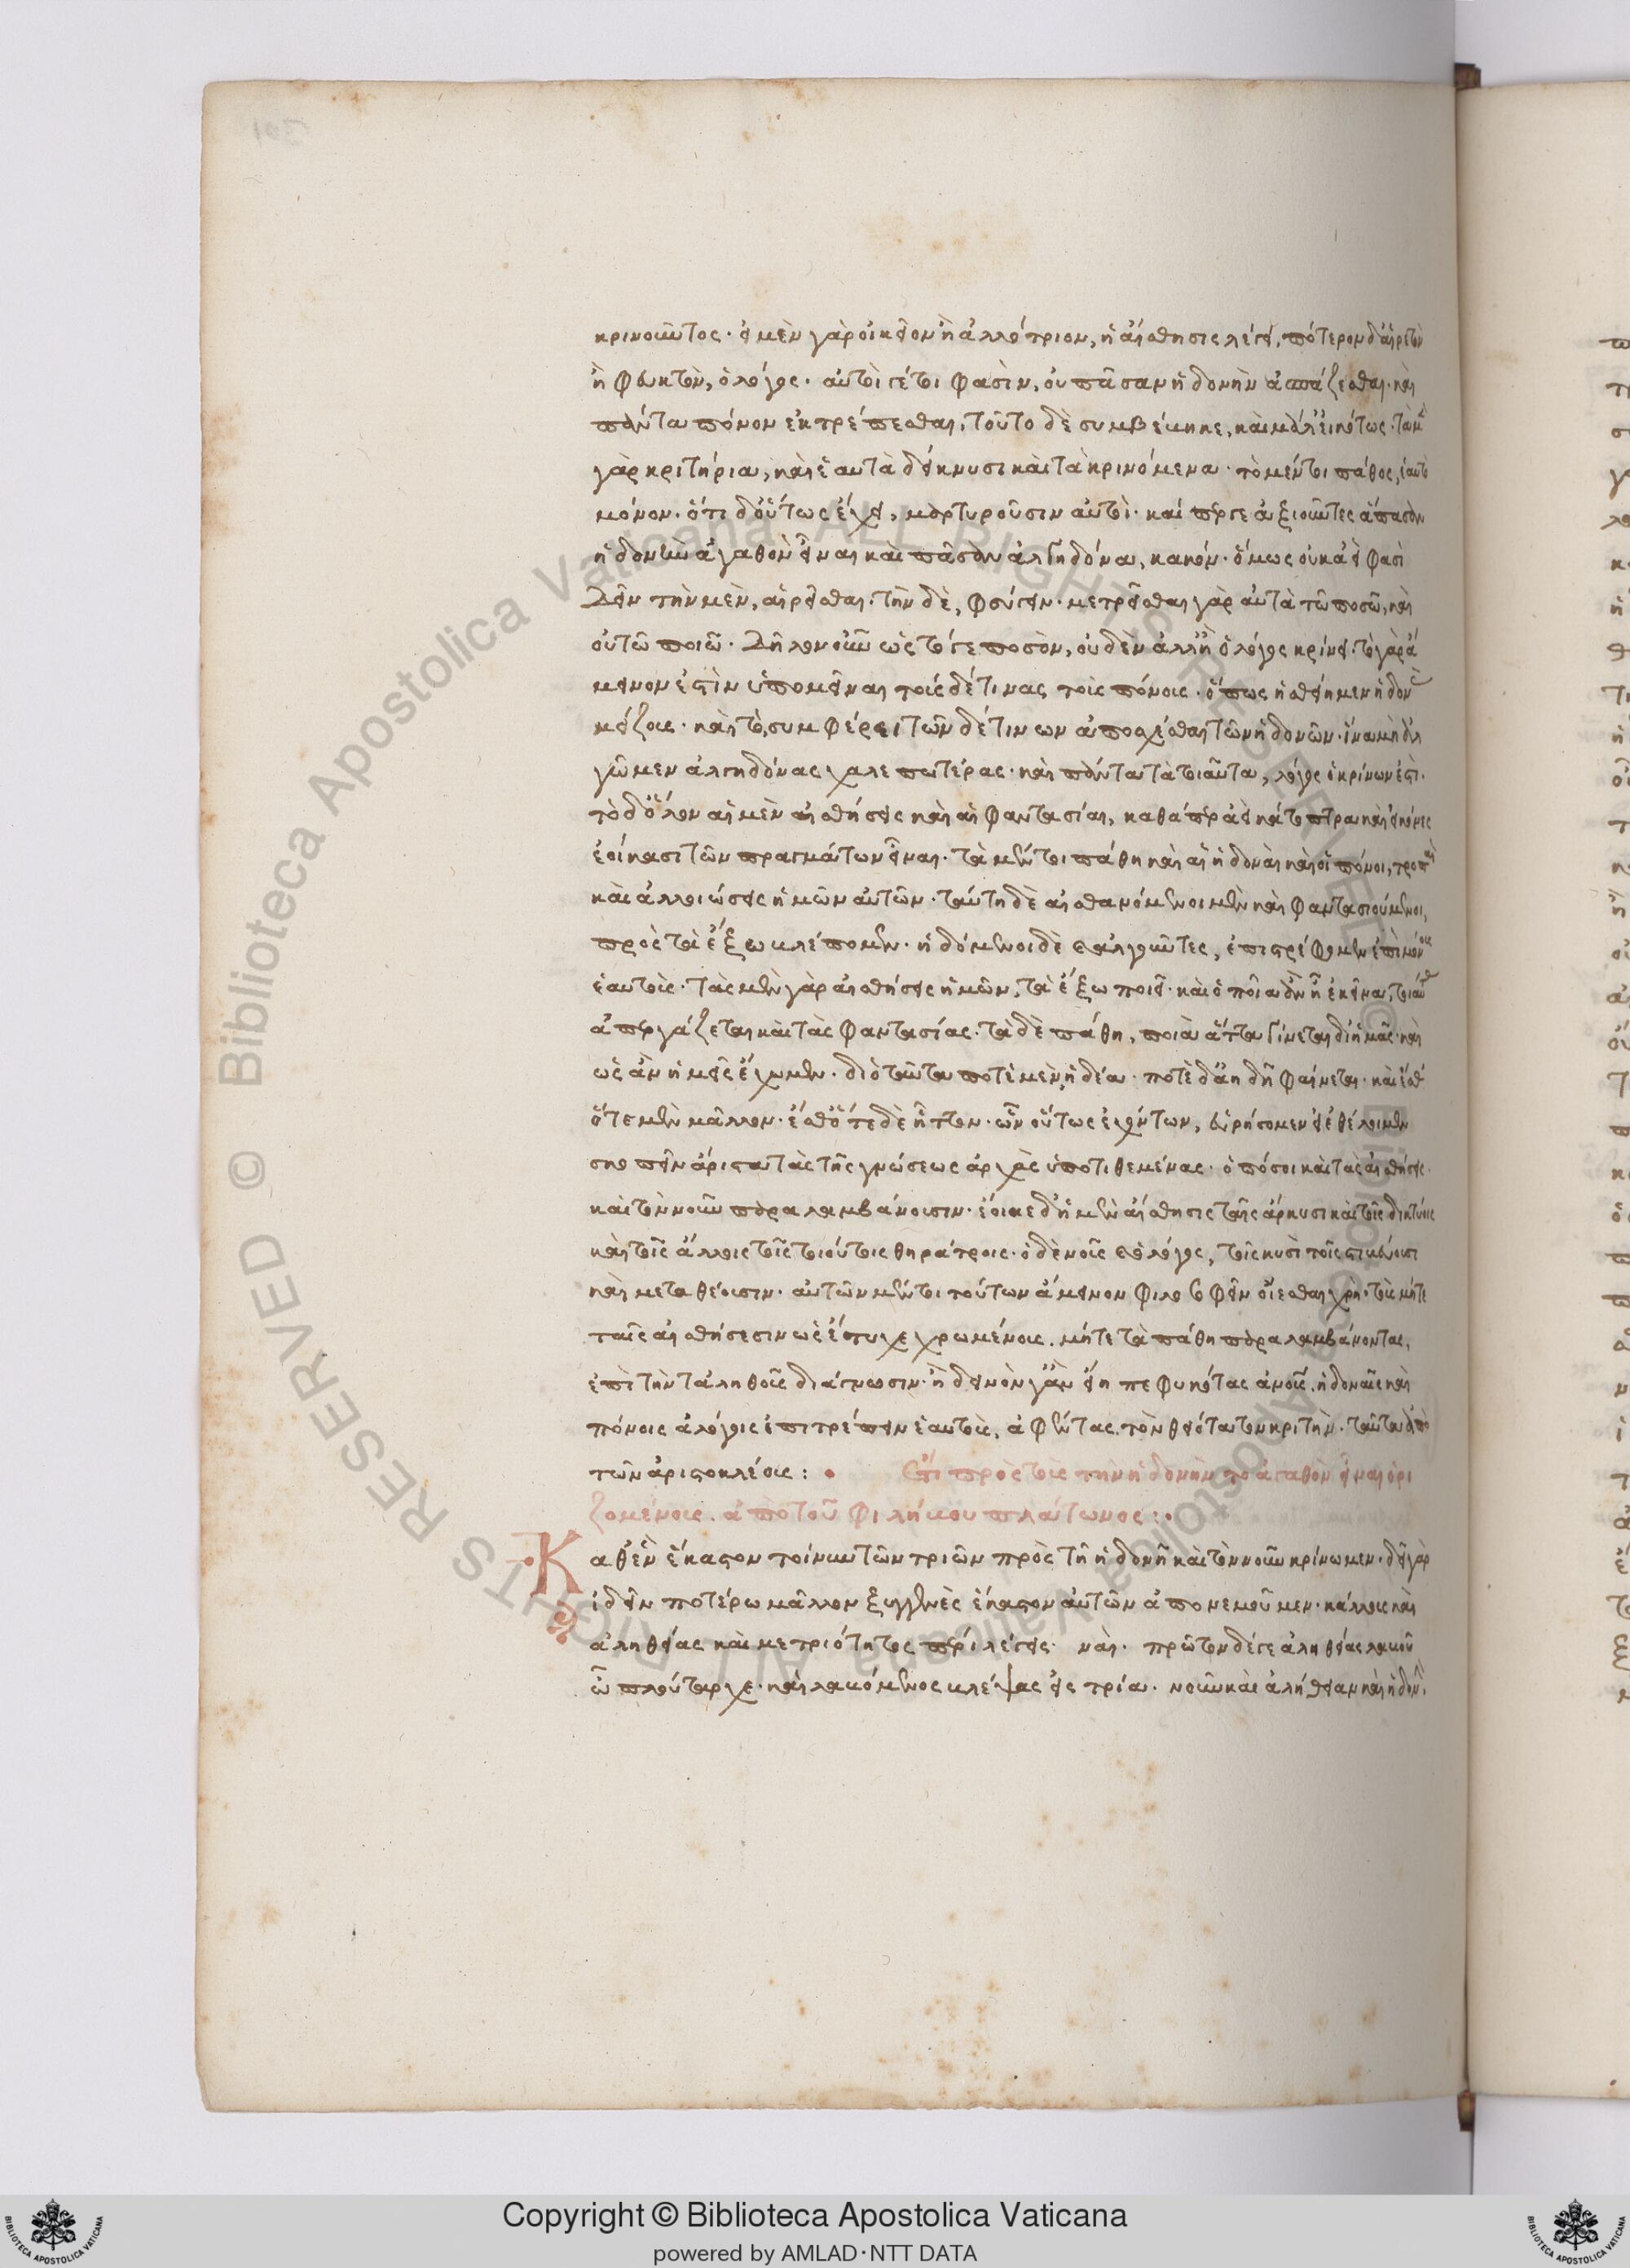 κρινοῦντος· εἰ μὲν γὰρ οἰκεῖον ἢ ἀλλότριον, ἡ αἴσθησις λέγει, πότερον δ' αἱρετὸν
ἢ φευκτὸν, ὁ λόγος· αὐτοί γέ τοι φασὶν, οὐ πᾶσαν ἡδονὴν ἀσπάζεσθαι· καὶ
πάντα πόνον ἐκτρέπεσθαι, τοῦτο δὲ συμβέβηκε, καὶ μάλ' εἰκότως· τὰ μὲν
γὰρ κριτήρια, καὶ ἑαυτὰ δείκνυσι καὶ τὰ κρινόμενα· τὸ μέντοι πάθος, ἑαυτὸ
μόνον· ὅτι δ' οὕτως ἔχει, μαρτυροῦσιν αὐτοί· καίπερ γε ἀξιοῦντες ἅπασαν
ἡδονὴν ἀγαθὸν εἶναι καὶ πᾶσαν ἀλγηδόνα, κακόν· ὅμως οὐκ ἀεί φασι
δεῖν τὴν μὲν, αἱρεῖσθαι· τὴν δὲ, φεύγειν· μετρεῖσθαι γὰρ αὐτὰ τῷ ποσῷ, καὶ
οὐ τῷ ποιῷ· δῆλον οὖν ὡς τό γε ποσὸν, οὐδὲν ἄλλ' ἢ ὁ λόγος κρίνει· τὸ γὰρ ἄ
μεινον ἐστὶν ὑπομεῖναι τούσδέ τινας τοὺς πόνους· ὅπως ἡσθείημεν ἡδονὰς
μείζους· καὶ τὸ, συμφέρει τῶνδέ τινων ἀποσχέσθαι τῶν ἡδονῶν· ἵνα μὴ ἀλ
γῶμεν ἀλγηδόνας χαλεπωτέρας· καὶ πάντα τὰ τοιαῦτα, λόγος ὁ κρίνων ἐστί·
τὸ δ' ὅλον αἱ μὲν αἰσθήσεις καὶ αἱ φαντασίαι, καθάπερ ἀεὶ κάτοπτρα καὶ εἰκόνες
ἐοίκασι τῶν πραγμάτων εἶναι· τὰ μέντοι πάθη καὶ αἱ ἡδοναὶ καὶ οἱ πόνοι, τροπαὶ
καὶ ἀλλοιώσεις ἡμῶν αὐτῶν· ταύτῃ δὲ αἰσθανόμενοι μὲν καὶ φαντασιούμενοι,
πρὸς τὰ ἔξω βλέπομεν· ἡδόμενοι δὲ καὶ ἀλγοῦντες, ἐπιστρέφομεν ἐπὶ μόνους
ἑαυτούς· τὰς μὲν γὰρ αἰσθήσεις ἡμῶν, τὰ ἔξω ποιεῖ· καὶ ὁποῖα ἂν ᾖ ἐκεῖνα, τοιαύτας
ἀπεργάζεται καὶ τὰς φαντασίας· τὰ δὲ πάθη, ποιὰ ἄττα γίνεται δι' ἡμᾶς· καὶ
ὡς ἂν ἡμεῖς ἔχωμεν· διὸ ταῦτα ποτὲ μὲν, ἡδέα· ποτὲ δ' ἀηδῆ φαίνεται· καὶ ἔσθ'
ὅτε μὲν μᾶλλον· ἔσθ' ὅτε δὲ ἧττον· ὧν οὕτως ἐχόντων, εὑρήσομεν εἰ ἐθέλοιμεν
σκοπεῖν ἄριστα τὰς τῆς γνώσεως ἀρχὰς ὑποτιθεμένας· ὁπόσοι καὶ τὰς αἰσθήσεις·
καὶ τὸν νοῦν παραλαμβάνουσιν· ἔοικε δ' ἡ μὲν αἴσθησις ταῖς ἄρκυσι καὶ τοῖς δικτύοις
καὶ τοῖς ἄλλοις τοῖς τοιούτοις θηράτροις· ὁ δὲ νοῦς καὶ ὁ λόγος, ταῖς κυσὶ τοῖς στιβεύουσι
καὶ μεταθέουσιν· αὐτῶν μέντοι τούτων ἄμεινον φιλοσοφεῖν οἴεσθαι χρὴ· τοὺς μήτε
ταῖς αἰσθήσεσιν ὡς ἔτυχε χρωμένους, μήτε τὰ πάθη παραλαμβάνοντας,
ἐπὶ τὴν τἀληθοῦς διάγνωσιν· ἢ δεινὸν γ' ἂν εἴη πεφυκότας ἀνους, ἡδοναῖς καὶ
πόνοις ἀλόγοις ἐπιτρέπειν ἑαυτοὺς, ἀφέντας τὸν θειότατον κριτὴν· ταῦτα ἀπὸ
τῶν ἀριστοκλέους: • Ἔτι πρὸς τοὺς τὴν ἡδονὴν τὸ ἀγαθὸν εἶναι ὁρι
ζομένους. ἀπὸ τοῦ φιλήβου πλάτωνος:•
Καθ' ἓν ἕκαστον τοίνυν τῶν τριῶν πρὸς τῇ ἡδονῇ καὶ τὸν νοῦν κρίνωμεν· δεῖ γὰρ
ἰδεῖν ποτέρῳ μᾶλλον ξυγγενὲς ἕκαστον αὐτῶν ἀπονεμοῦμεν· κάλλους καὶ
ἀληθείας καὶ μετριότητος πέρι λέγεις· ναί· πρῶτον δέ γε ἀληθείας λαβοῦ
ὦ πλούταρχε· καὶ λαβόμενος βλέψας εἰς τρία· νοῦν καὶ ἀλήθειαν καὶ ἡδονὴν·
Copyright © Biblioteca Apostolica Vaticana
powered by AMLAD·NTT DATA